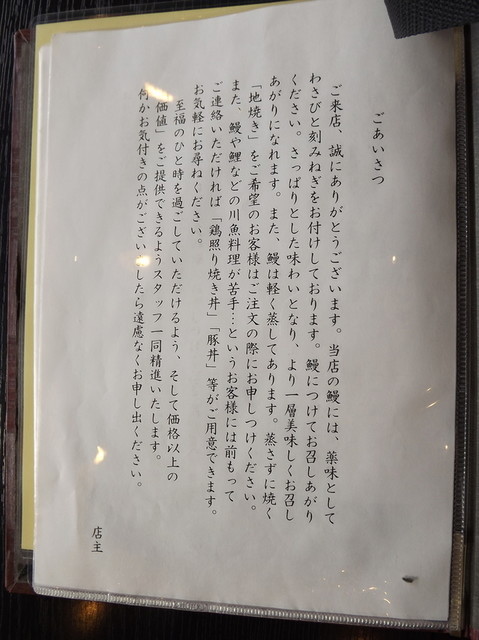 ごあいさつ
ご来店、誠にありがとうございます。当店の鰻には、薬味として
わさびと刻みねぎをお付けしております。鰻につけてお召しあがり
ください。さっぱりとした味わいとなり、より一層美味しくお召し
あがりになれます。また、鰻は軽く蒸してあります。蒸さずに焼く
「地焼き」をご希望のお客様はご注文の際にお申しつけください。
また、鰻や鯉などの川魚料理が苦手…というお客様には前もって
ご連絡いただければ「鶏照り焼き丼」「豚丼」等がご用意できます。
お気軽にお尋ねください。
至福のひと時を過ごしていただけるよう、そして価格以上の
価値」をご提供できるようスタッフ一同精進いたします。
何かお気付きの点がございましたら遠慮なくお申し出ください。
店主